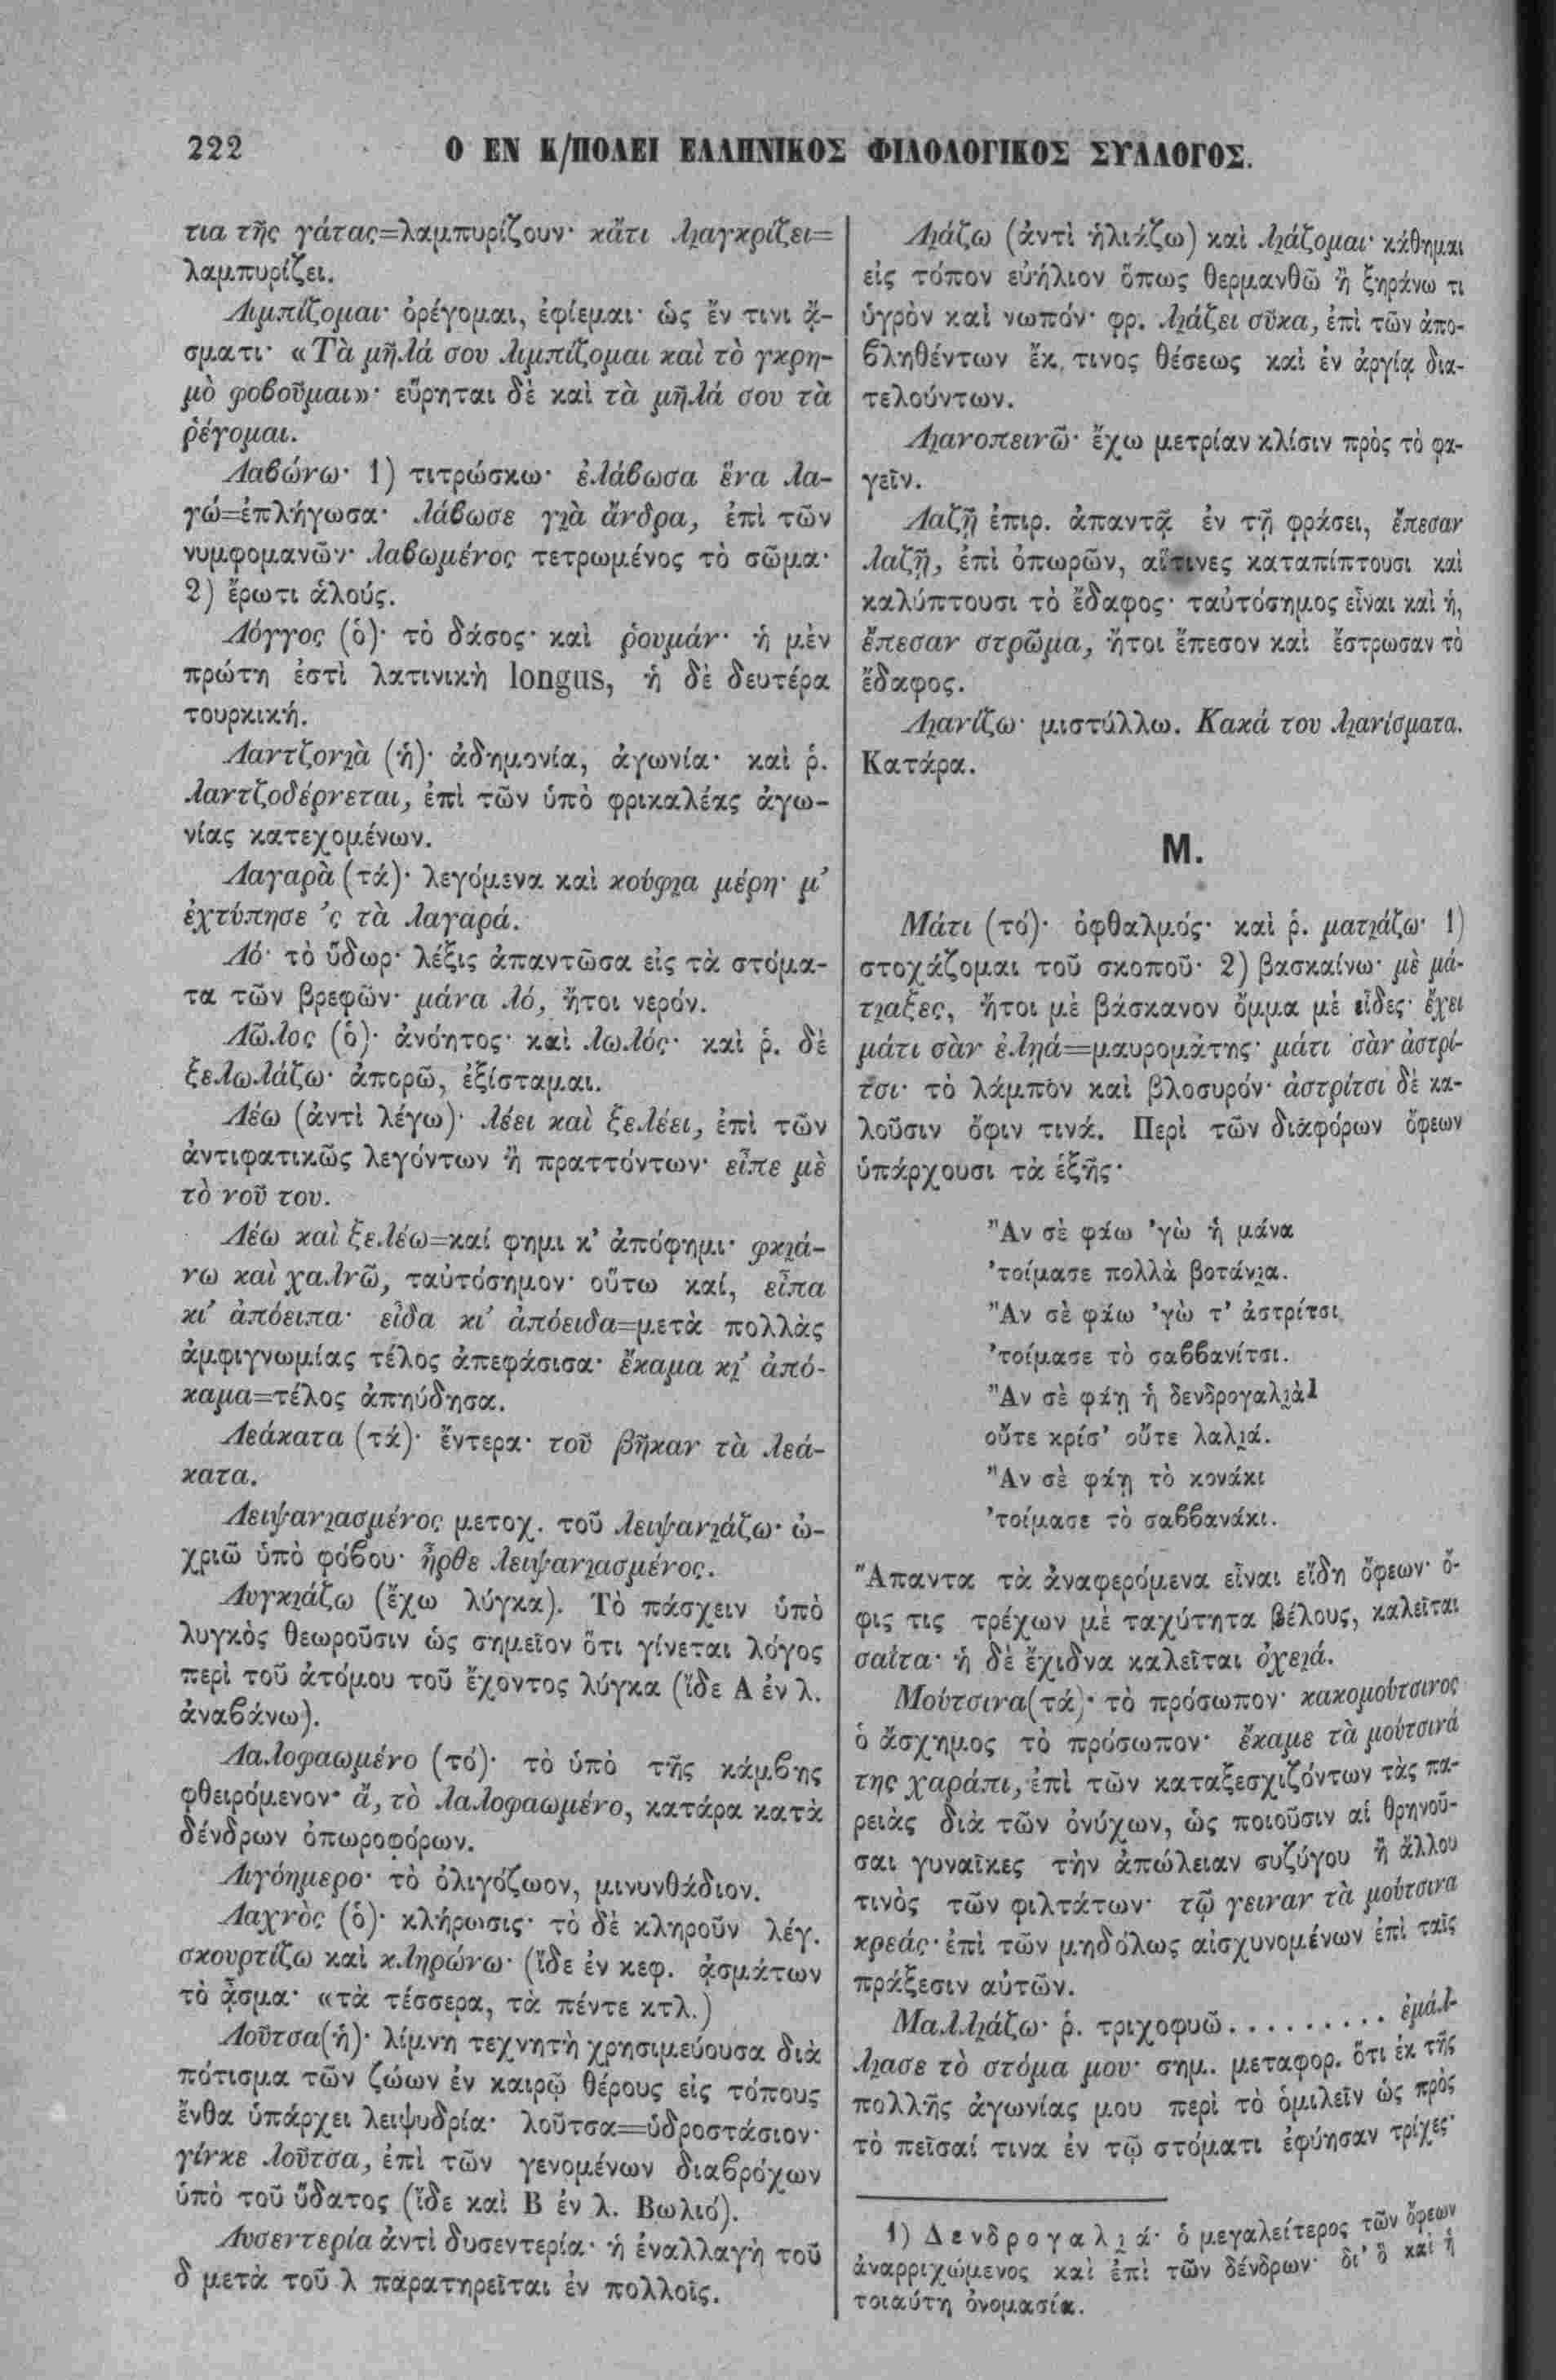 222
Ο ΕΝ Κ/ΠΟΛΕΙ ΕΛΛΗΝΙΚΟΣ ΦΙΛΟΛΟΓΙΚΟΣ ΣΥΛΛΟΓΟΣ.
τια τῆς γάτας=λαμπυρίζουν· κἄτι λι̯αγκρίζει=
λαμπυρίζει.
Λιμπίζομαι· ὀρέγομαι, ἐφίεμαι· ὡς ἔν τινι ᾄ-
σματι· «Τὰ μῆλά σου λιμπίζομαι καὶ τὸ γκρη-
μὸ φοβοῦμαι»· εὕρηται δὲ καὶ τὰ μῆλά σου τὰ
ῥέγομαι.
Λαβώνω· 1) τιτρώσκω· ἐλάβωσα ἕνα λα-
γώ=ἐπλήγωσα· λάβωσε γι̯ὰ ἄνδρα, ἐπὶ τῶν
νυμφομανῶν· λαβωμένος τετρωμένος τὸ σῶμα·
2) ἔρωτι ἁλούς.
Λόγγος (ὁ)· τὸ δάσος· καὶ ῥουμάν· ἡ μὲν
πρώτη ἐστὶ λατινικὴ longus, ἡ δὲ δευτέρα
τουρκική.
Λαντζονι̯ὰ (ἡ)· ἀδημονία, ἀγωνία· καὶ ῥ.
λαντζοδέρνεται, ἐπὶ τῶν ὑπὸ φρικαλέας ἀγω-
νίας κατεχομένων.
Λαγαρὰ (τά)· λεγόμενα καὶ κούφι̯α μέρη· μ'
ἐχτύπησε 'ς τὰ λαγαρά.
Λό· τὸ ὕδωρ· λέξις ἀπαντῶσα εἰς τὰ στόμα-
τα τῶν βρεφῶν· μάνα λό, ἤτοι νερόν.
Λῶλος (ὁ)· ἀνόητος· καὶ λωλός· καὶ ῥ. δὲ
ξελωλάζω· ἀπορῶ, ἐξίσταμαι.
Λέω (ἀντὶ λέγω)· λέει καὶ ξελέει, ἐπὶ τῶν
ἀντιφατικῶς λεγόντων ἢ πραττόντων· εἶπε μὲ
τὸ νοῦ του.
Λέω καὶ ξελέω=καί φημι κ' ἀπόφημι· φκι̯ά-
νω καὶ χαλνῶ, ταὐτόσημον· οὕτω καί, εἶπα
κι' ἀπόειπα· εἶδα κι' ἀπόειδα=μετὰ πολλὰς
ἀμφιγνωμίας τέλος ἀπεφάσισα· ἔκαμα κι̯' ἀπό-
καμα=τέλος ἀπηύδησα.
Λεάκατα (τά)· ἔντερα· τοῦ βῆκαν τὰ λεά-
κατα.
Λειψανι̯ασμένος μετοχ. τοῦ λειψανι̯άζω· ὠ-
χριῶ ὑπὸ φόβου· ἦρθε λειψανι̯ασμένος.
Λυγκι̯άζω (ἔχω λύγκα). Τὸ πάσχειν ὑπὸ
λυγκὸς θεωροῦσιν ὡς σημεῖον ὅτι γίνεται λόγος
περὶ τοῦ ἀτόμου τοῦ ἔχοντος λύγκα (ἴδε Α ἐν λ.
ἀναβάνω).
Λαλοφαωμένο (τό)· τὸ ὑπὸ τῆς κάμβης
φθειρόμενον· ἄ, τὸ λαλοφαωμένο, κατάρα κατὰ
δένδρων ὀπωροφόρων.
Λιγόημερο· τὸ ὀλιγόζωον, μινυνθάδιον.
Λαχνὸς (ὁ)· κλήρωσις· τὸ δὲ κληροῦν λέγ.
σκουρτίζω καὶ κληρώνω· (ἴδε ἐν κεφ. ᾀσμάτων
τὸ ᾆσμα· «τὰ τέσσερα, τὰ πέντε κτλ.)
Λοῦτσα(ἡ)· λίμνη τεχνητὴ χρησιμεύουσα διὰ
πότισμα τῶν ζώων ἐν καιρῷ θέρους εἰς τόπους
ἔνθα ὑπάρχει λειψυδρία· λοῦτσα=ὑδροστάσιον·
γίνκε λοῦτσα, ἐπὶ τῶν γενομένων διαβρόχων
ὑπὸ τοῦ ὕδατος (ἴδε καὶ Β ἐν λ. Βωλιό).
Λυσεντερία ἀντὶ δυσεντερία· ἡ ἐναλλαγὴ τοῦ
δ μετὰ τοῦ λ παρατηρεῖται ἐν πολλοῖς.
Λι̯άζω (ἀντὶ ἡλιάζω) καὶ λι̯άζομαι· κάθημαι
εἰς τόπον εὐήλιον ὅπως θερμανθῶ ἢ ξηράνω τι
ὑγρὸν καὶ νωπόν· φρ. λι̯άζει σῦκα, ἐπὶ τῶν ἀπο-
βληθέντων ἔκ τινος θέσεως καὶ ἐν ἀργίᾳ δια-
τελούντων.
Λι̯ανοπεινῶ· ἔχω μετρίαν κλίσιν πρὸς τὸ φα-
γεῖν.
Λαζῇ ἐπιρ. ἀπαντᾷ ἐν τῇ φράσει, ἔπεσαν
λαζῇ, ἐπὶ ὀπωρῶν, αἵτινες καταπίπτουσι καὶ
καλύπτουσι τὸ ἔδαφος· ταὐτόσημος εἶναι καὶ ἡ,
ἔπεσαν στρῶμα, ἤτοι ἔπεσον καὶ ἔστρωσαν τὸ
ἔδαφος.
Λι̯ανίζω· μιστύλλω. Κακά του λι̯ανίσματα.
Κατάρα.
Μ.
Μάτι (τό)· ὀφθαλμός· καὶ ῥ. ματι̯άζω· 1)
στοχάζομαι τοῦ σκοποῦ· 2) βασκαίνω· μὲ μά-
τι̯αξες, ἤτοι μὲ βάσκανον ὄμμα μὲ εἶδες· ἔχει
μάτι σὰν ἐλῃά=μαυρομάτης· μάτι σὰν ἀστρί-
τσι· τὸ λάμπον καὶ βλοσυρόν· ἀστρίτσι δὲ κα-
λοῦσιν ὄφιν τινά. Περὶ τῶν διαφόρων ὄφεων
ὑπάρχουσι τὰ ἑξῆς·
"Αν σὲ φάω 'γὼ ἡ μάνα
'τοίμασε πολλὰ βοτάνι̯α.
"Αν σὲ φάω 'γὼ τ' ἀστρίτσι
'τοίμασε τὸ σαββανίτσι.
"Αν σὲ φάῃ ἡ δενδρογαλι̯ὰ1
οὔτε κρίσ' οὔτε λαλι̯ά.
"Αν σὲ φάῃ τὸ κονάκι
'τοίμασε τὸ σαββανάκι.
"Απαντα τὰ ἀναφερόμενα εἶναι εἴδη ὄφεων· ὄ-
φις τις τρέχων μὲ ταχύτητα βέλους, καλεῖται
σαΐτα· ἡ δὲ ἔχιδνα καλεῖται ὀχει̯ά.
Μούτσινα(τά)· τὸ πρόσωπον· κακομούτσινος
ὁ ἄσχημος τὸ πρόσωπον· ἔκαμε τὰ μούτσινά
της χαράπι, ἐπὶ τῶν καταξεσχιζόντων τὰς πα-
ρειὰς διὰ τῶν ὀνύχων, ὡς ποιοῦσιν αἱ θρηνοῦ-
σαι γυναῖκες τὴν ἀπώλειαν συζύγου ἢ ἄλλου
τινὸς τῶν φιλτάτων· τῷ γειναν τὰ μούτσινα
κρεάς· ἐπὶ τῶν μηδόλως αἰσχυνομένων ἐπὶ ταῖς
πράξεσιν αὐτῶν.
Μαλλι̯άζω· ῥ. τριχοφυῶ......... ἐμάλ-
λι̯ασε τὸ στόμα μου· σημ. μεταφορ. ὅτι ἐκ τῆς
πολλῆς ἀγωνίας μου περὶ τὸ ὁμιλεῖν ὡς πρὸς
τὸ πεῖσαί τινα ἐν τῷ στόματι ἐφύησαν τρίχες·
1) Δενδρογαλι̯ά· ὁ μεγαλείτερος τῶν ὄφεων
ἀναρριχώμενος καὶ ἐπὶ τῶν δένδρων· δι' ὃ καὶ ἡ
τοιαύτη ὀνομασία.